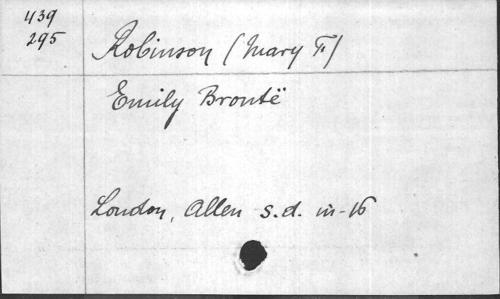 439
295
Robinson (Mary F)
Emily Brontë
London, Allen s.d. in-16